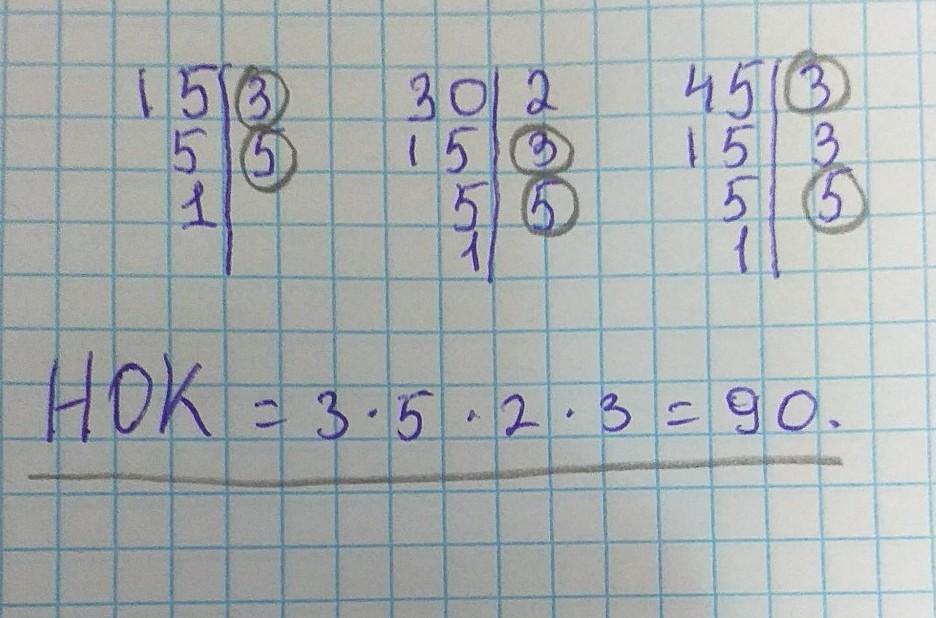 15|3 30|2 45|3
5|5 15|3 15|3
1| 5|5 5|5
1| 1|
НОК = 3·5·2·3 = 90.